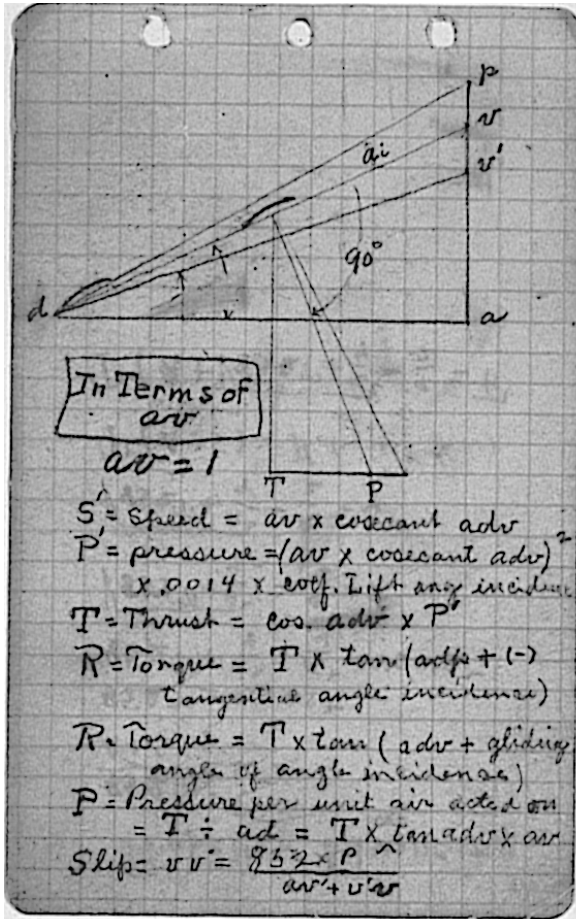 p
v
ai
v'
90°
d
a
In Terms of
av
av = 1
T P
S' = Speed = av x cosecant adv
P' = pressure = (av x cosecant adv)²
x .0014 x coef. Lift ang incidence
T = Thrust = cos. adv x P'
R = Torque = T x tan (adp + (-)
tangential angle incidence)
R = Torque = T x tan (adv + gliding
angle of angle incidense)
P = Pressure per unit air acted on
= T ÷ ad = T x tan adv x av
Slip = vv' = 852 x P
av' + v'v